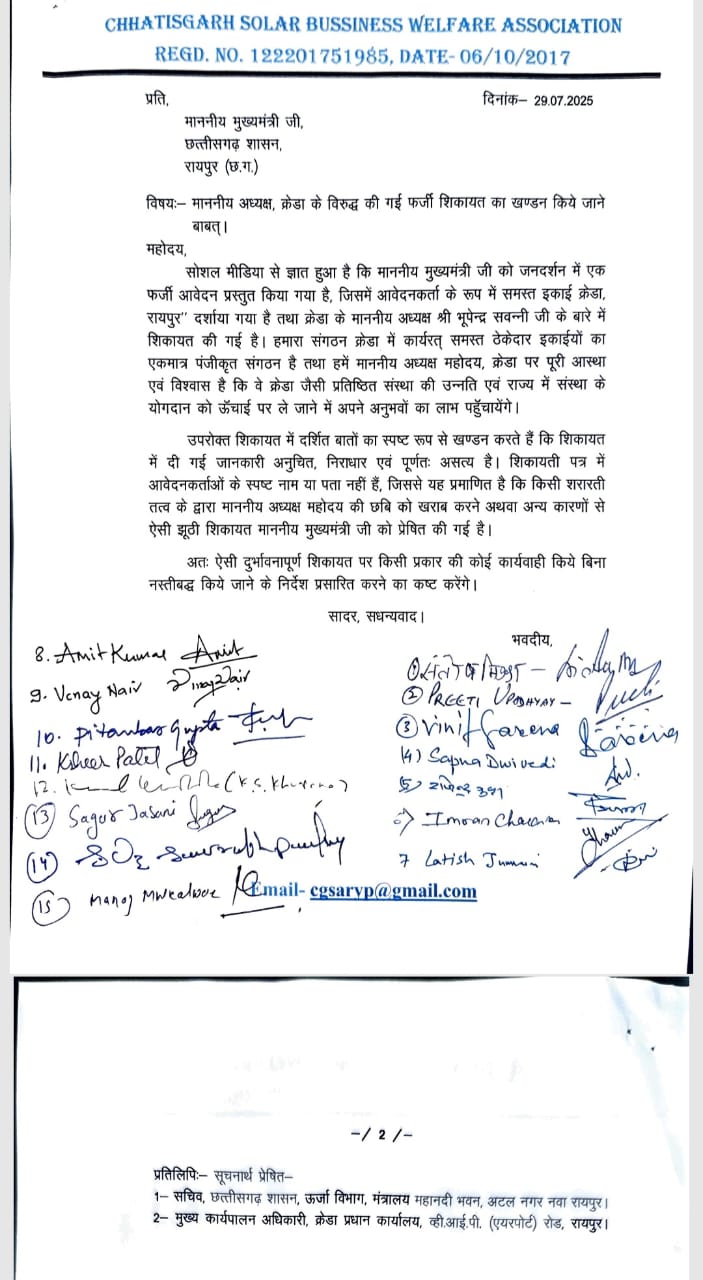 CHHATISGARH SOLAR BUSSINESS WELFARE ASSOCIATION
REGD. NO. 122201751985, DATE- 06/10/2017
प्रति, दिनांक– 29.07.2025
माननीय मुख्यमंत्री जी,
छत्तीसगढ़ शासन,
रायपुर (छ.ग.)
विषयः– माननीय अध्यक्ष, क्रेडा के विरुद्ध की गई फर्जी शिकायत का खण्डन किये जाने
बाबत्।
महोदय,
सोशल मीडिया से ज्ञात हुआ है कि माननीय मुख्यमंत्री जी को जनदर्शन में एक
फर्जी आवेदन प्रस्तुत किया गया है, जिसमें आवेदनकर्ता के रूप में समस्त इकाई क्रेडा,
रायपुर" दर्शाया गया है तथा क्रेडा के माननीय अध्यक्ष श्री भूपेन्द्र सवन्नी जी के बारे में
शिकायत की गई है। हमारा संगठन क्रेडा में कार्यरत् समस्त ठेकेदार इकाईयों का
एकमात्र पंजीकृत संगठन है तथा हमें माननीय अध्यक्ष महोदय, क्रेडा पर पूरी आस्था
एवं विश्वास है कि वे क्रेडा जैसी प्रतिष्ठित संस्था की उन्नति एवं राज्य में संस्था के
योगदान को ऊँचाई पर ले जाने में अपने अनुभवों का लाभ पहुँचायेंगे।
उपरोक्त शिकायत में दर्शित बातों का स्पष्ट रूप से खण्डन करते हैं कि शिकायत
में दी गई जानकारी अनुचित, निराधार एवं पूर्णतः असत्य है। शिकायती पत्र में
आवेदनकर्ताओं के स्पष्ट नाम या पता नहीं हैं, जिससे यह प्रमाणित है कि किसी शरारती
तत्व के द्वारा माननीय अध्यक्ष महोदय की छबि को खराब करने अथवा अन्य कारणों से
ऐसी झूठी शिकायत माननीय मुख्यमंत्री जी को प्रेषित की गई है।
अतः ऐसी दुर्भावनापूर्ण शिकायत पर किसी प्रकार की कोई कार्यवाही किये बिना
नस्तीबद्ध किये जाने के निर्देश प्रसारित करने का कष्ट करेंगे।
सादर, सधन्यवाद।
भवदीय,
② PREETI UPADHYAY –
③ Vinit
(4) Sapna Dwivedi
Imran
7 Latish
8. Amit Kumar Amit
9. Venay Nair
10. Pitambar Gupta
11. Kisher Patel
12.
(13) Sagar Jasani
(14)
(15) Manoj
Email- cgsaryp@gmail.com
-/ 2 /-
प्रतिलिपिः– सूचनार्थ प्रेषित–
1– सचिव, छत्तीसगढ़ शासन, ऊर्जा विभाग, मंत्रालय महानदी भवन, अटल नगर नवा रायपुर।
2– मुख्य कार्यपालन अधिकारी, क्रेडा प्रधान कार्यालय, व्ही.आई.पी. (एयरपोर्ट) रोड, रायपुर।